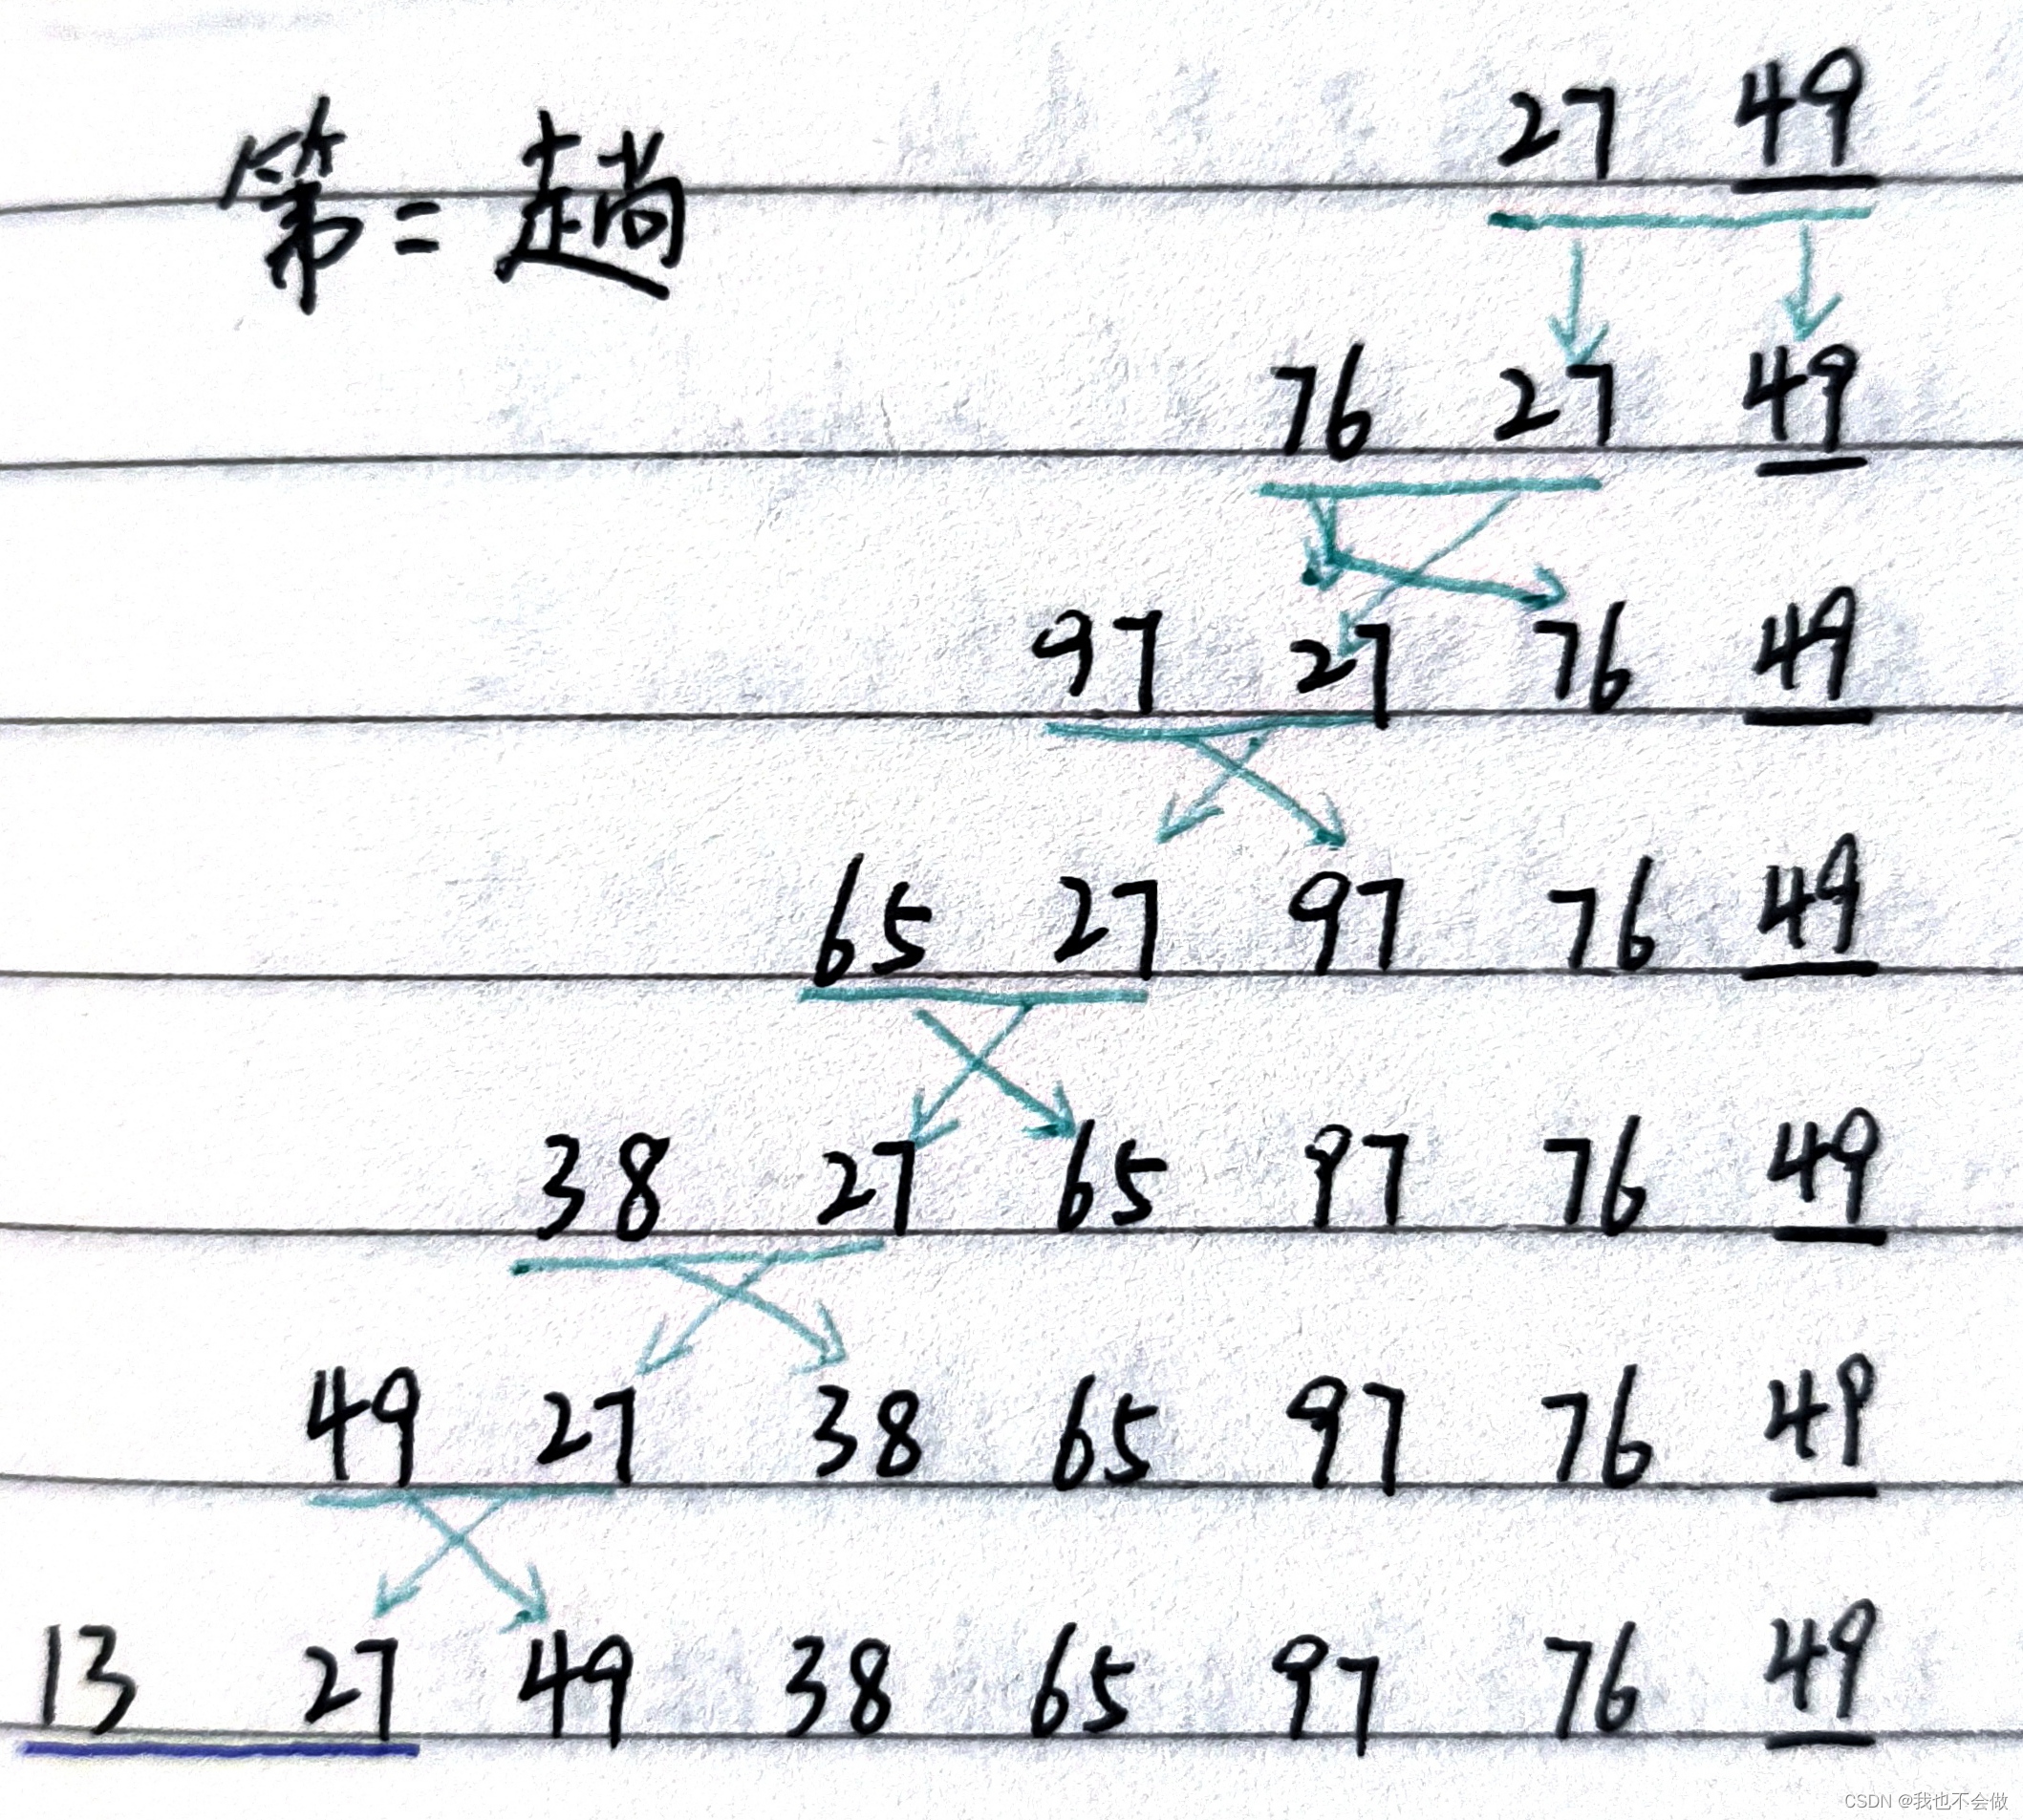 第二趟
27 49
76 27 49
97 27 76 49
65 27 97 76 49
38 27 65 97 76 49
49 27 38 65 97 76 49
13 27 49 38 65 97 76 49
CSDN @我也不会做